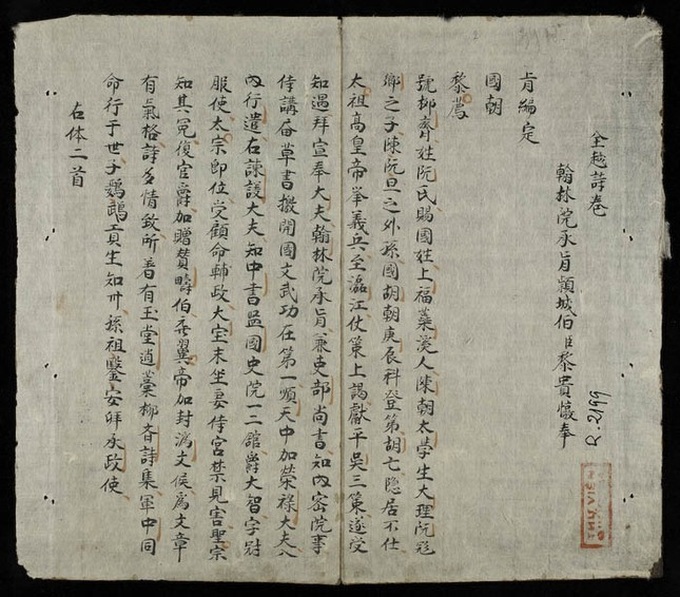 全越詩卷
翰林院承旨頴城伯臣黎貴惇奉
旨編定
國朝
黎廌
號抑齋姓阮氏賜國姓上福蘂溪人陳朝太學生大理阮飛
卿之子陳阮旦之外孫國胡朝庚辰科登第胡亡隐居不仕
太祖高皇帝举義兵至瀘江仗策上謁獻平吳三策遂受
知遇拜宣奉大夫翰林院承旨兼吏部尚書知内密院事
侍講草書撥開國文武功在第一順天中加榮禄大夫入
内行遣右諫議大夫知中書監國史院一二舘爵大智字冠
服使太宗即位受顧命輔政大宝末坐妻侍宮禁見害聖宗
知其冤復官爵加贈賛疇伯翼帝加封濟文侯為文章
有氣格詩多情致所着有玉堂遺藁抑齋詩集軍中同
命行于世子鸚鵡貢生知州孫祖鑒安拜承政使
右体二首
R.2199